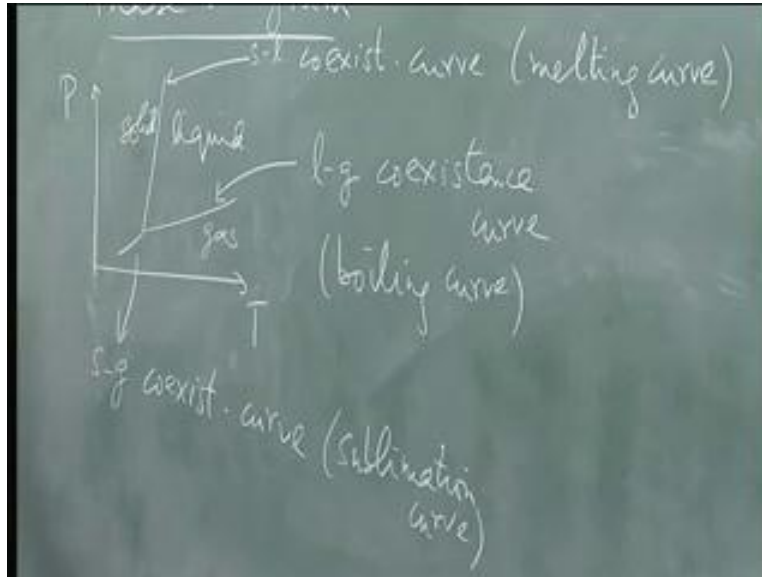 s-l coexist. curve (melting curve)
P
solid liquid
l-g coexistance
curve
gas
(boiling curve)
T
s-g coexist. curve (sublimation
curve)